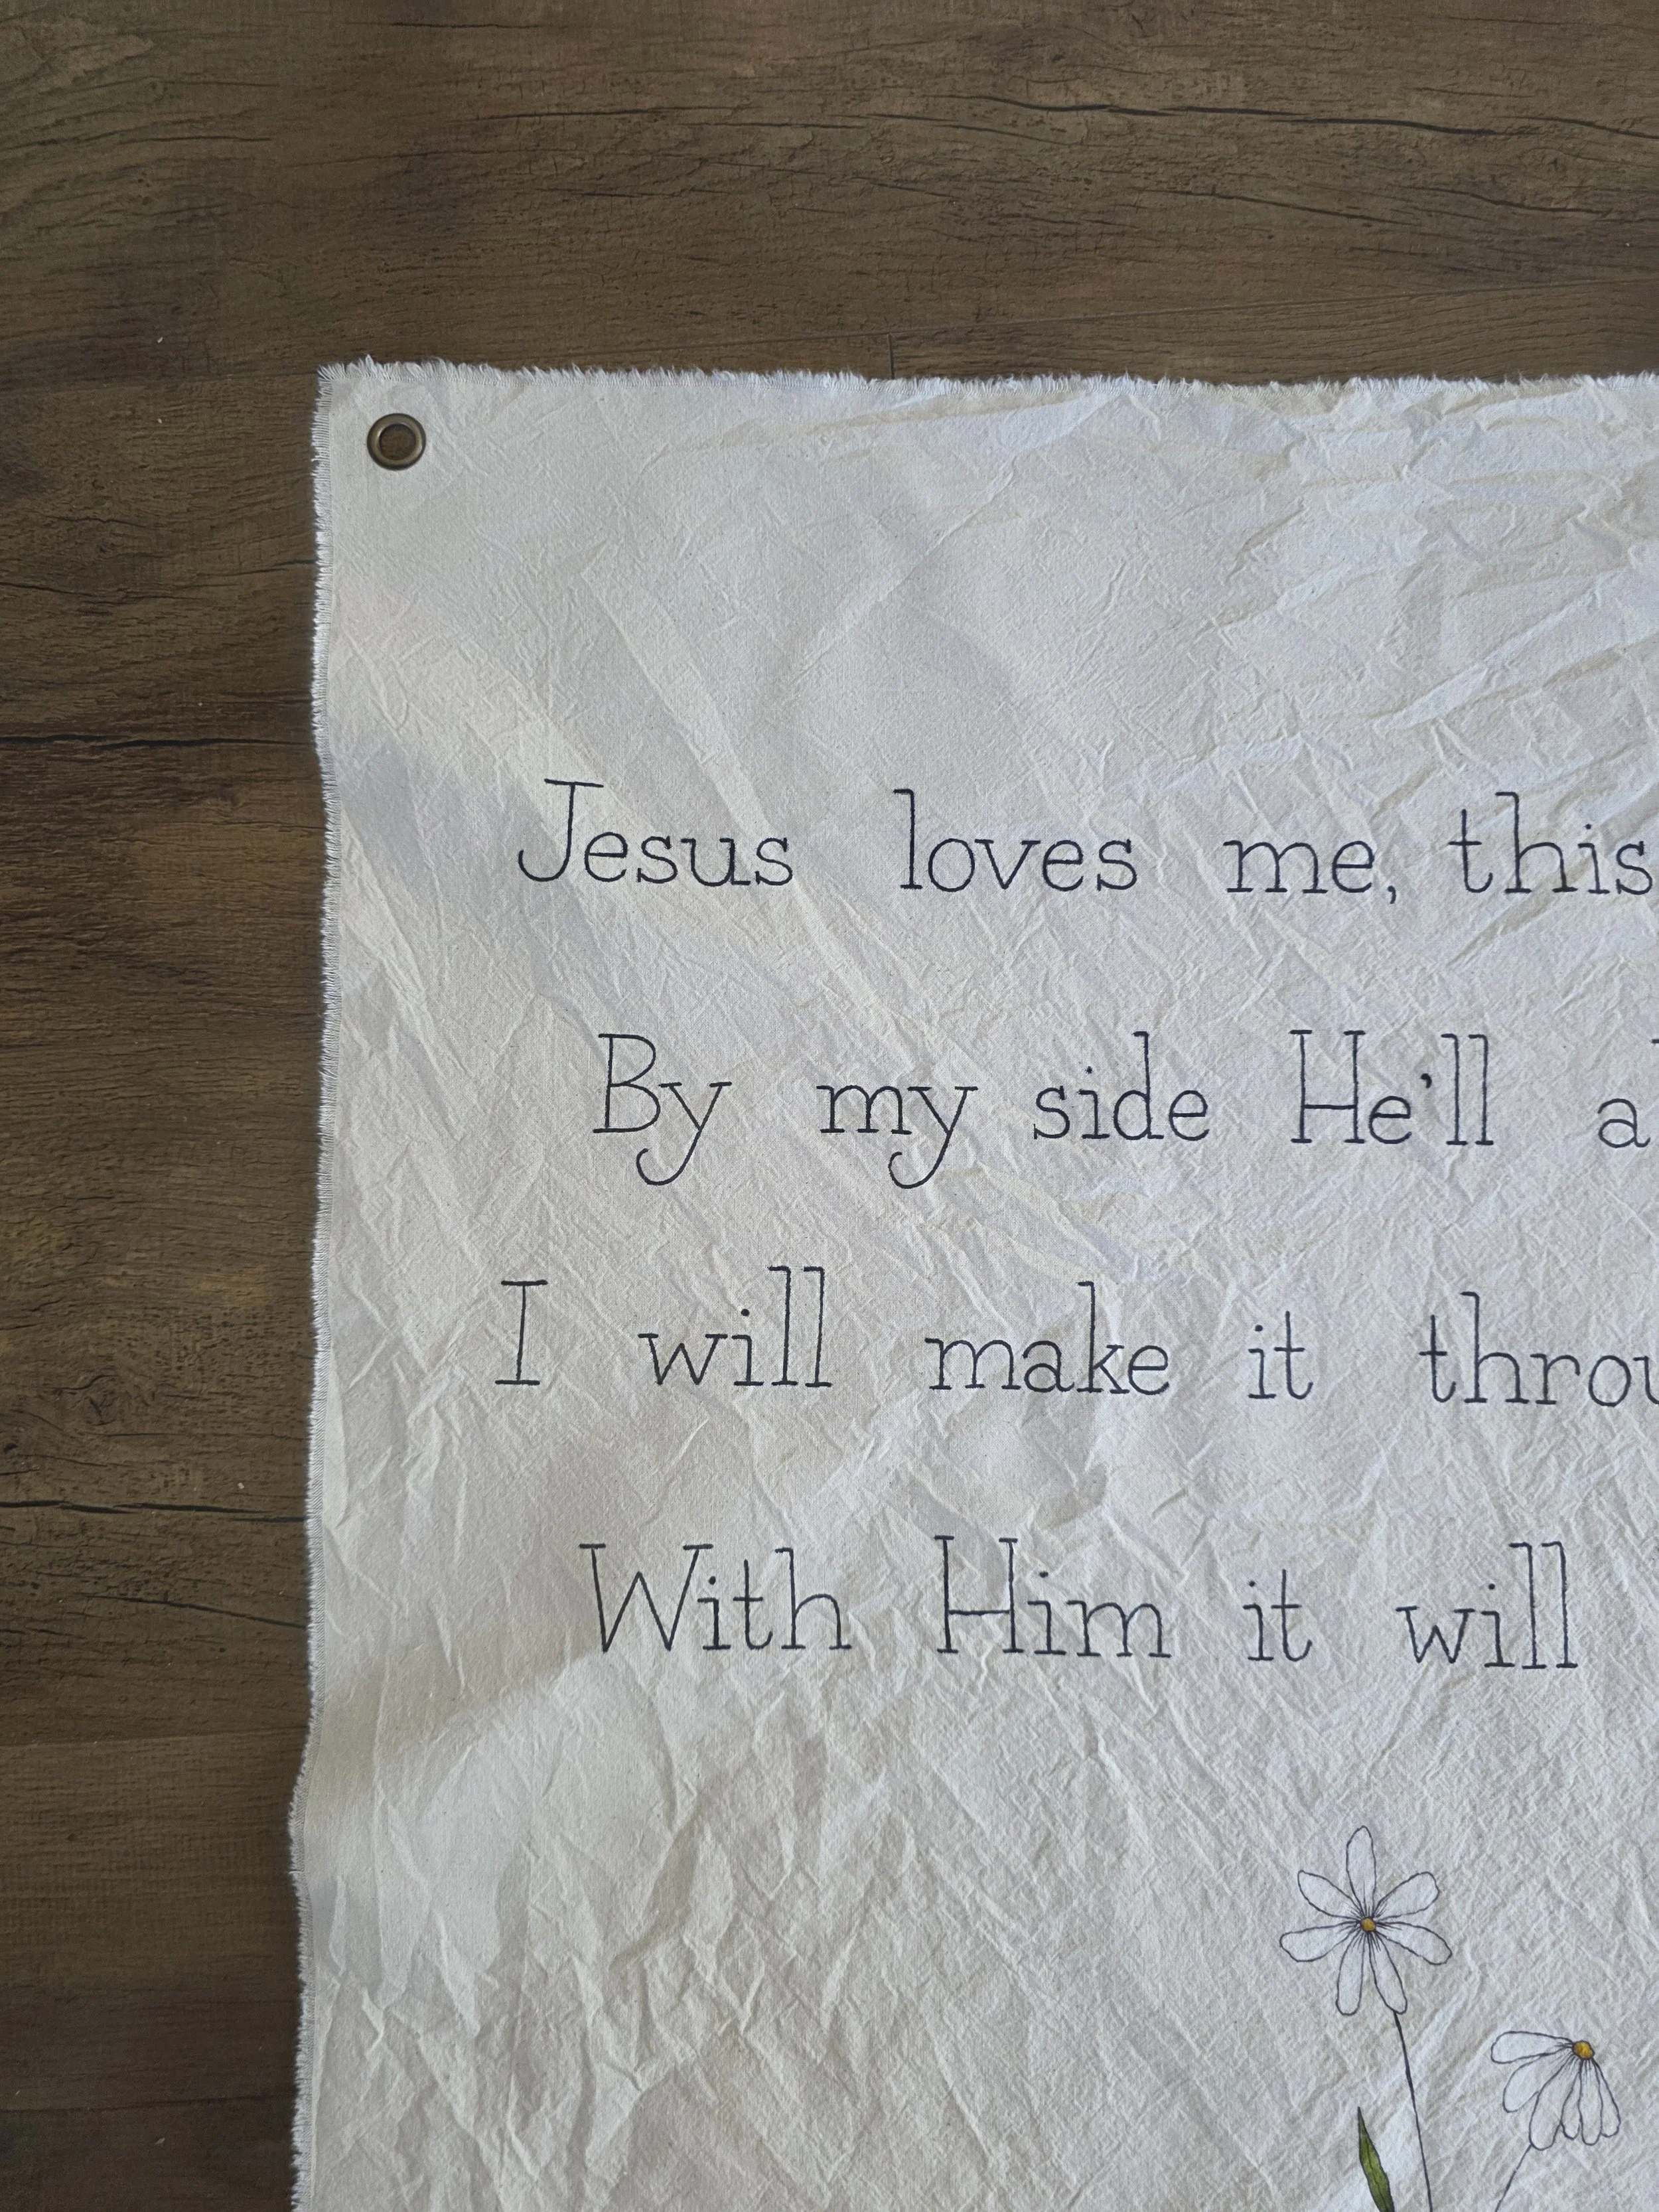 Jesus loves me, this
By my side He'll
I will make it
With Him it will